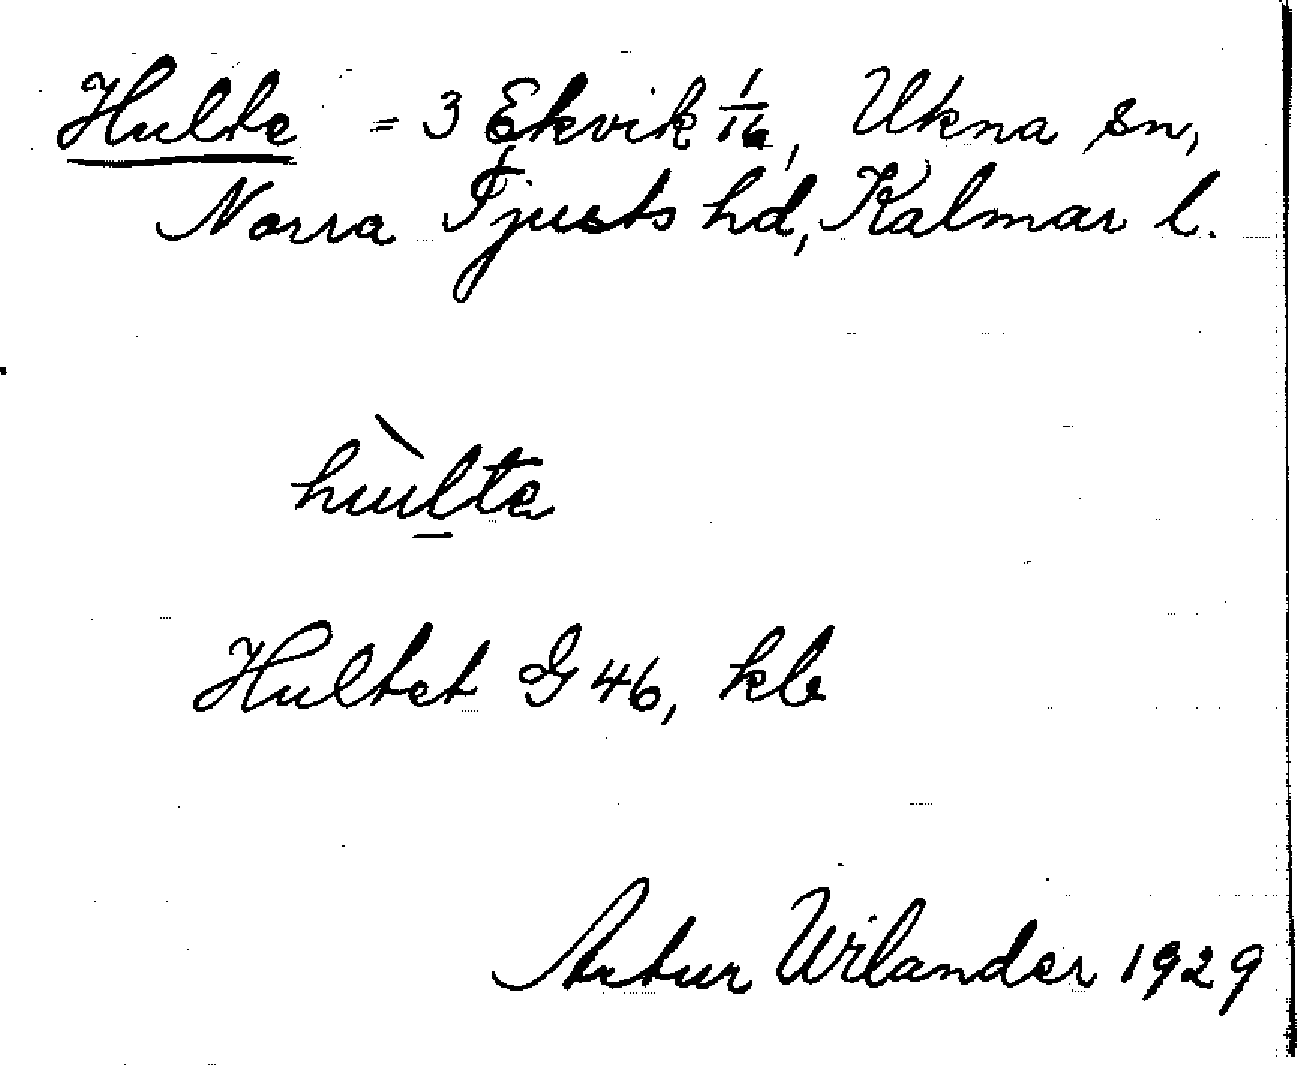 Hulte = 3 Ekvik 1/16, Ukna sn,
Norra Tjusts hd, Kalmar l.
hùlta
Hultet G 46, kle
Artur Wilander 1929